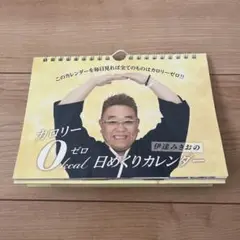 このカレンダーを毎日見れば全てのものはカロリーゼロ!!
カロリー
0ゼロ
kcal
伊達みきおの
日めくりカレンダー